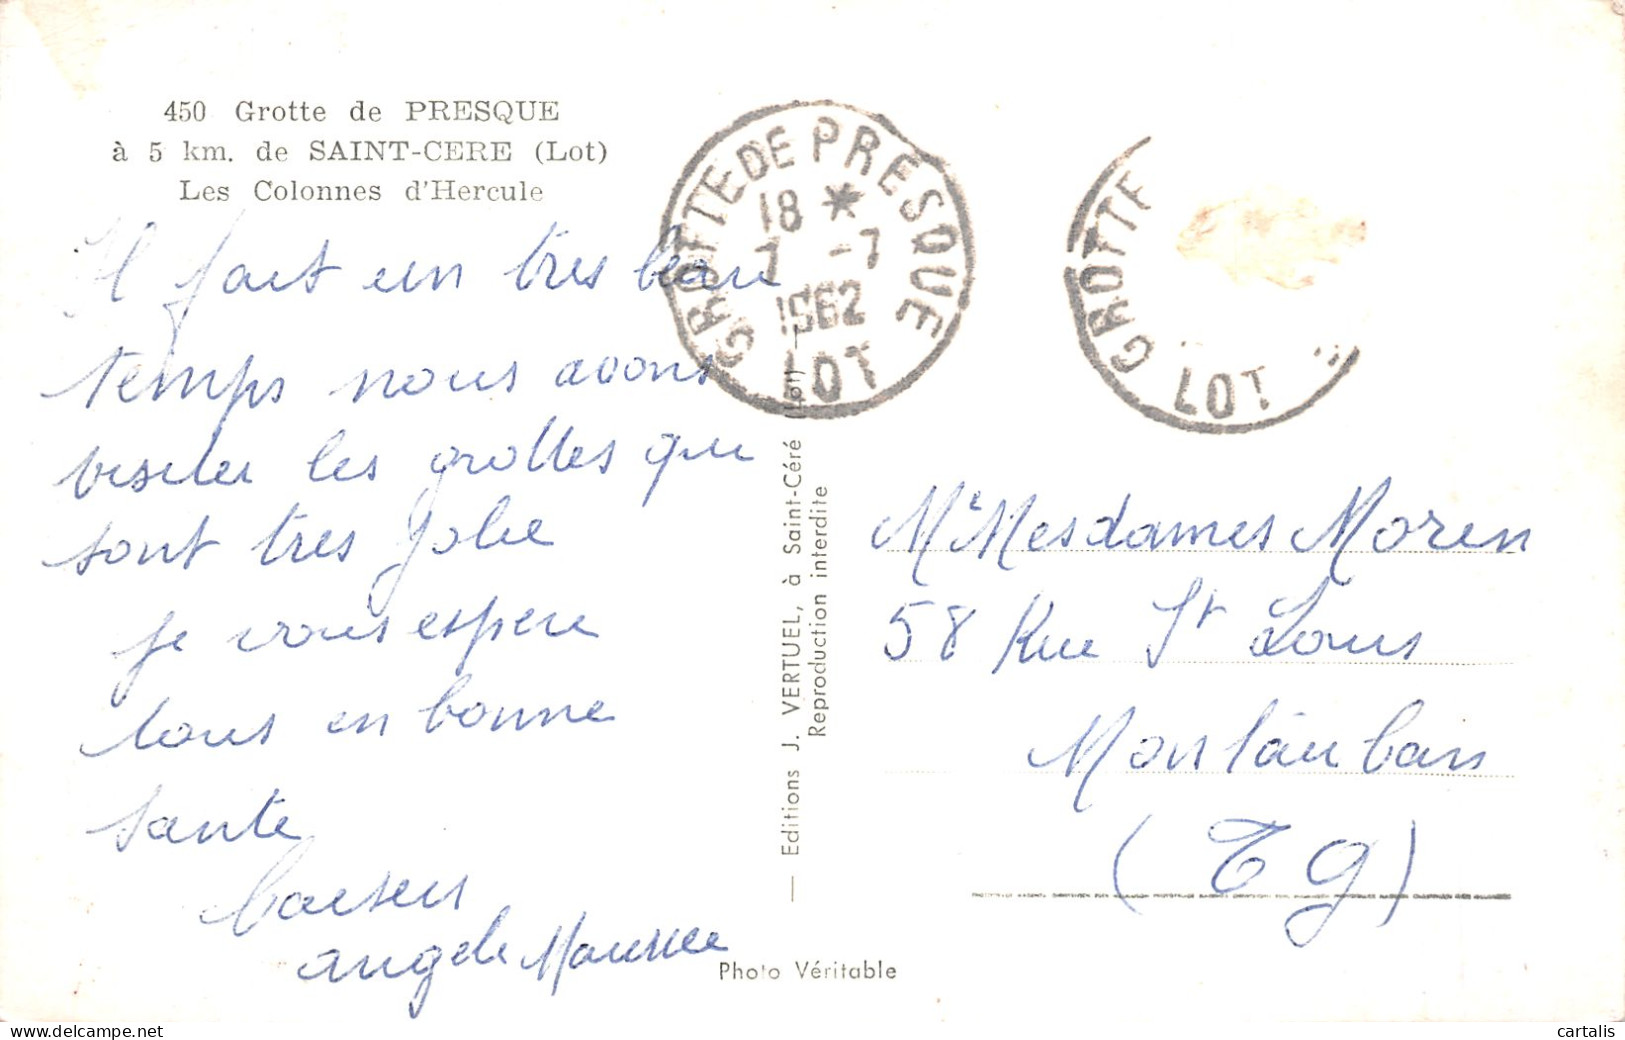 450 Grotte de PRESQUE
à 5 km. de SAINT-CERE (Lot)
Les Colonnes d'Hercule
Il fait un tres beau
temps nous avons
visiter les grottes qui
sont tres jolie
je vous espere
tous en bonne
sante
baisers
angele Maurice
GROTTE DE PRESQUE
18 *
7 -7
1962
LOT
GROTTE
LOT
— Editions J. VERTUEL, à Saint-Céré (Lot) —
Reproduction interdite
Photo Véritable
Mr Mesdames Moren
58 Rue St Louis
Montauban
(T G)
cartalis
www.delcampe.net